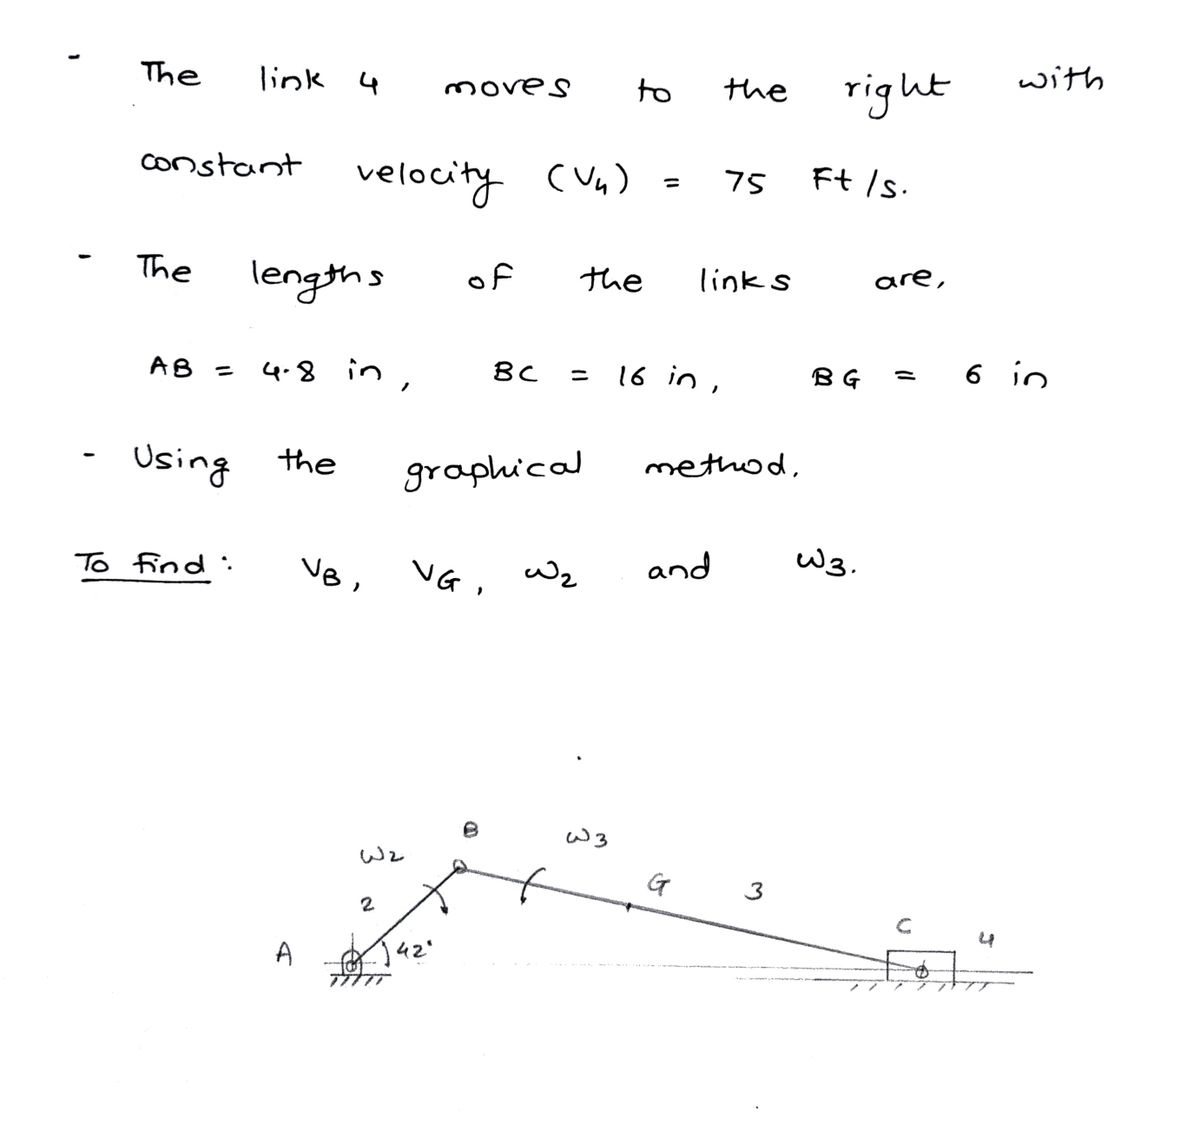 - The link 4 moves to the right with
constant velocity (V4) = 75 Ft/s.
- The lengths of the links are,
AB = 4.8 in, BC = 16 in, BG = 6 in
- Using the graphical method.
To find: VB, VG, ω2 and ω3.
B
ω3
ω2
G
3
2
C
4
A
42°